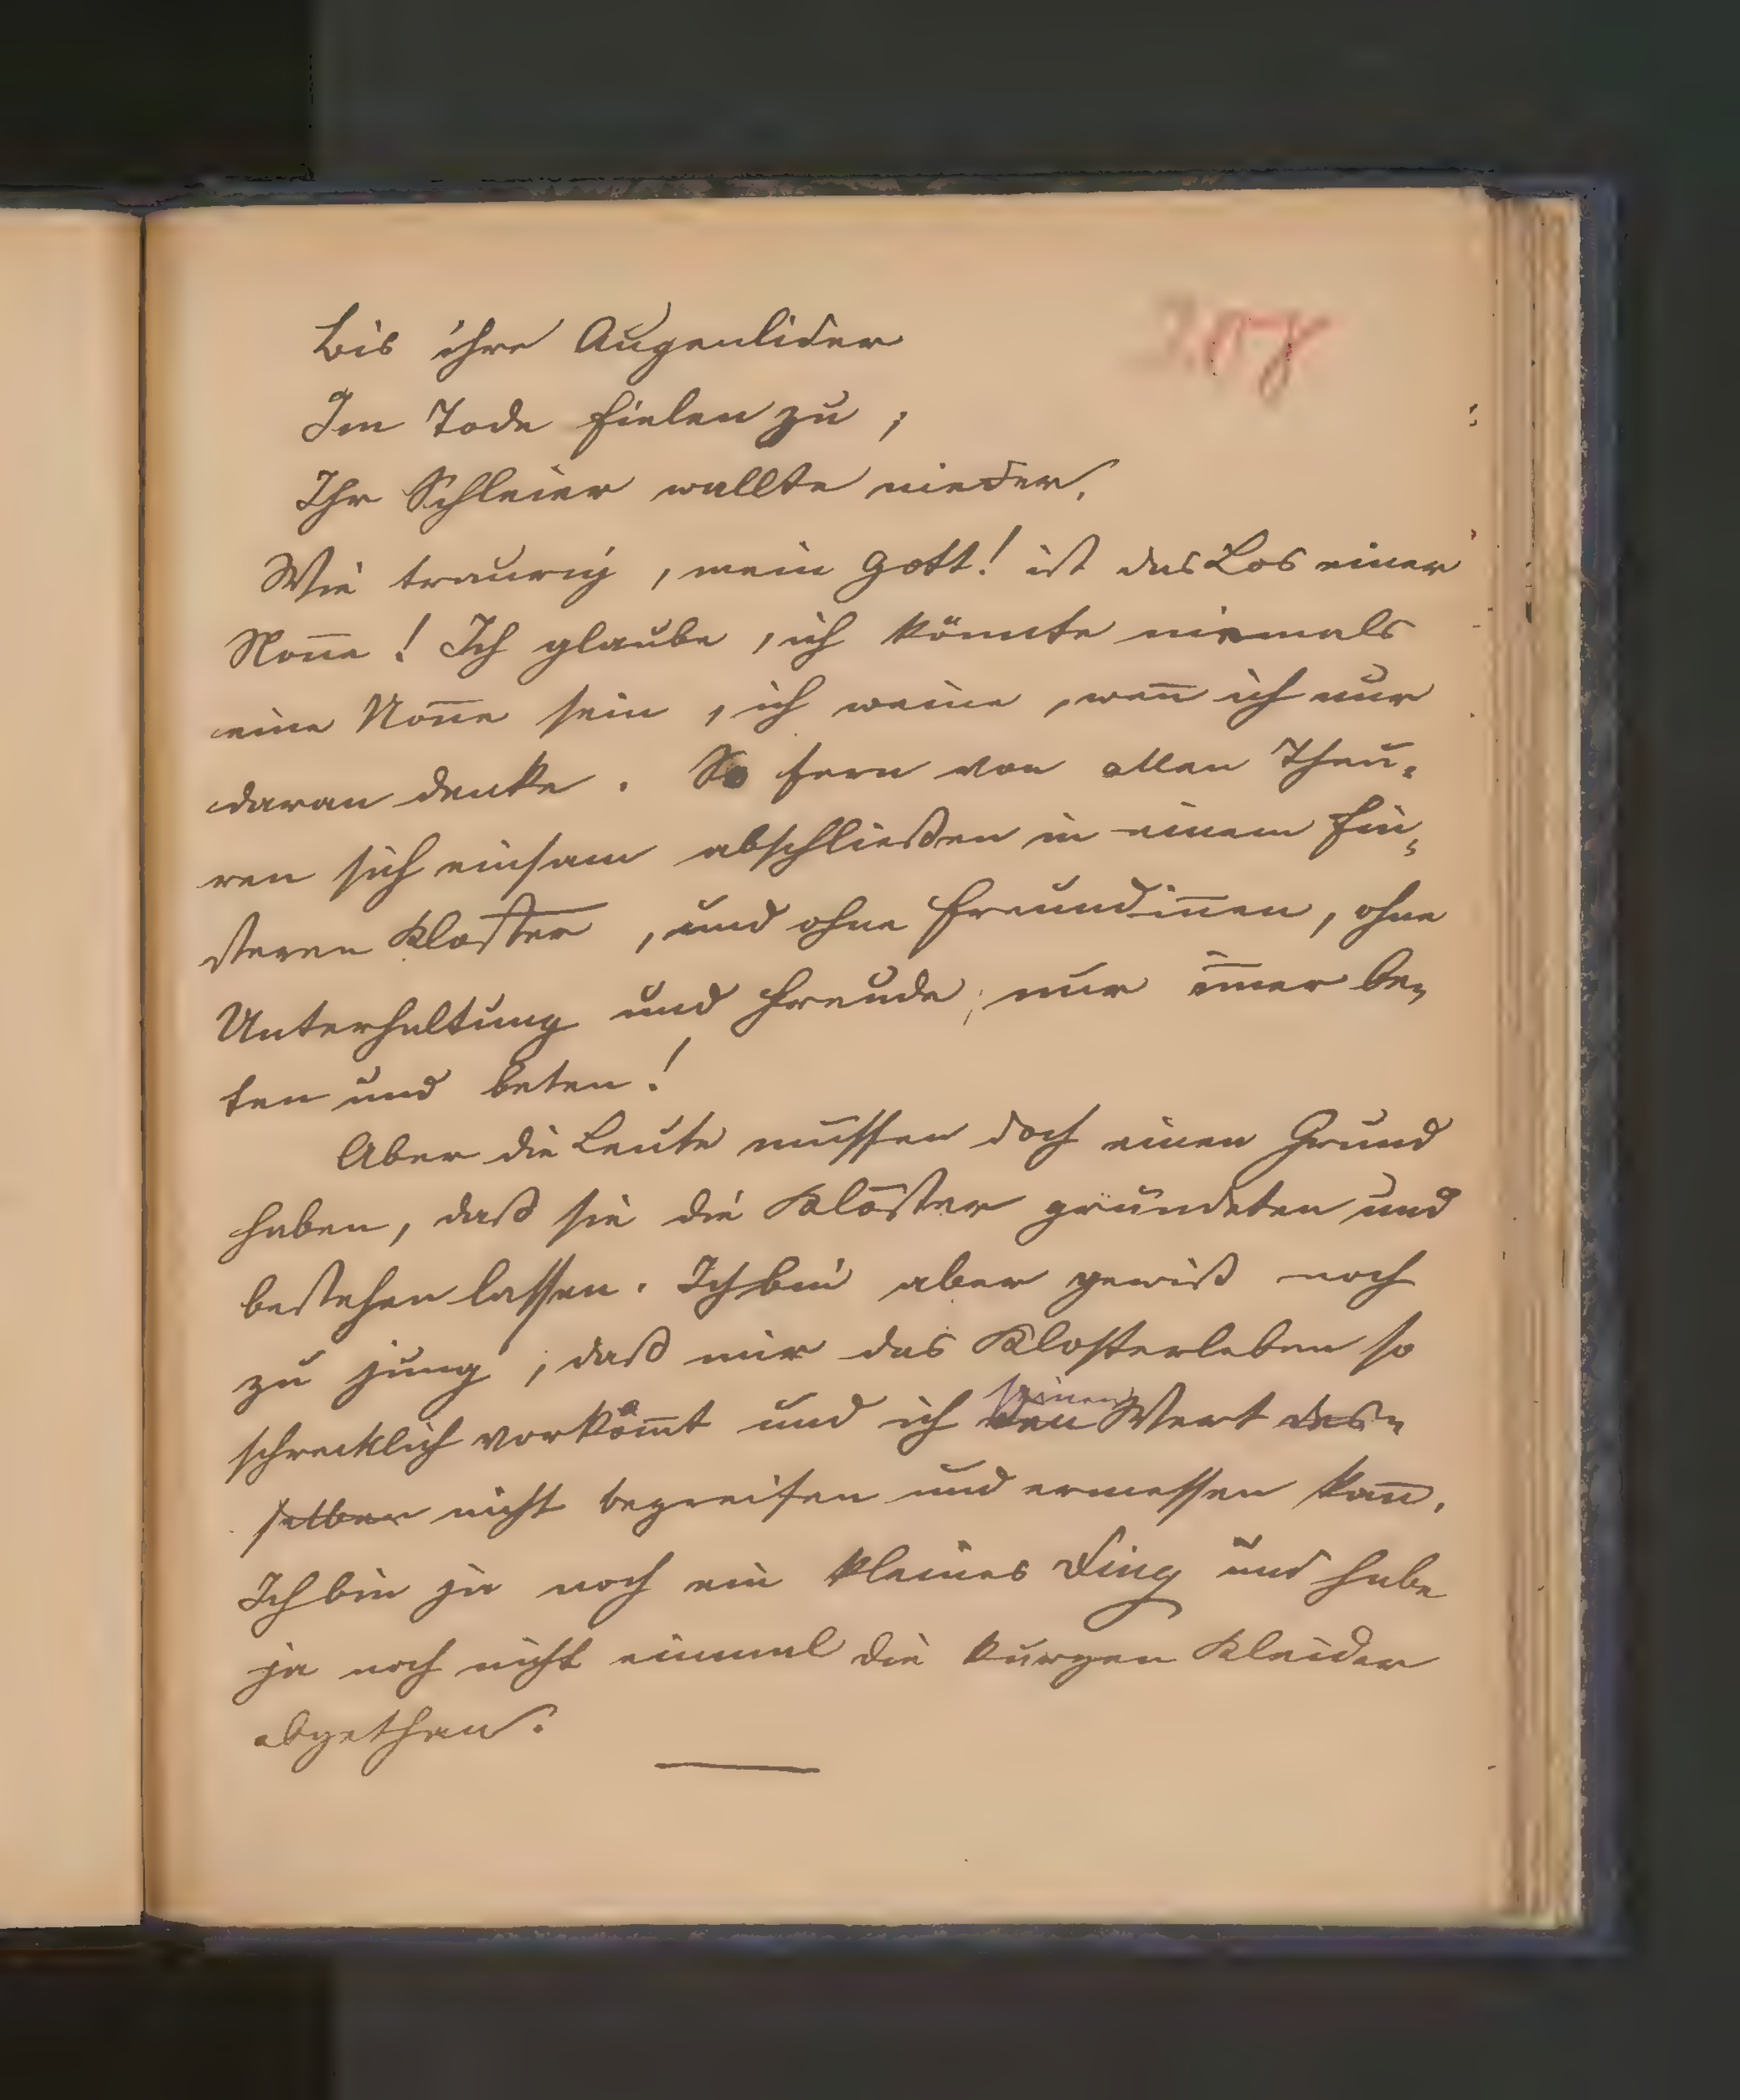 Bis ihre Augenlider
Im Tode fielen zu;
Ihr Schleier wallte nieder.
Wie traurig, mein Gott! ist das Los einer
Non̄e! Ich glaube, ich könnte niemals
eine Non̄e sein, ich weine, wen̄ ich nur
daran denke. So fern von allen Theu-
ren sich einsam abschließen in einem fin-
steren Kloster, und ohne Freundin̄en, ohne
Unterhaltung und Freude, nur im̄er be-
ten und beten!
Aber die Leute müssen doch einen Grund
haben, daß sie die Klöster gründeten und
bestehen lassen. Ich bin aber gewiß noch
zu jung, daß mir das Klosterleben so
seinen
schrecklich vorköm̄t und ich den Wert des-
selben nicht begreifen und ermessen kan̄.
Ich bin ja noch ein kleines Ding und habe
ja noch nicht einmal die kurzen Kleider
abgethan.